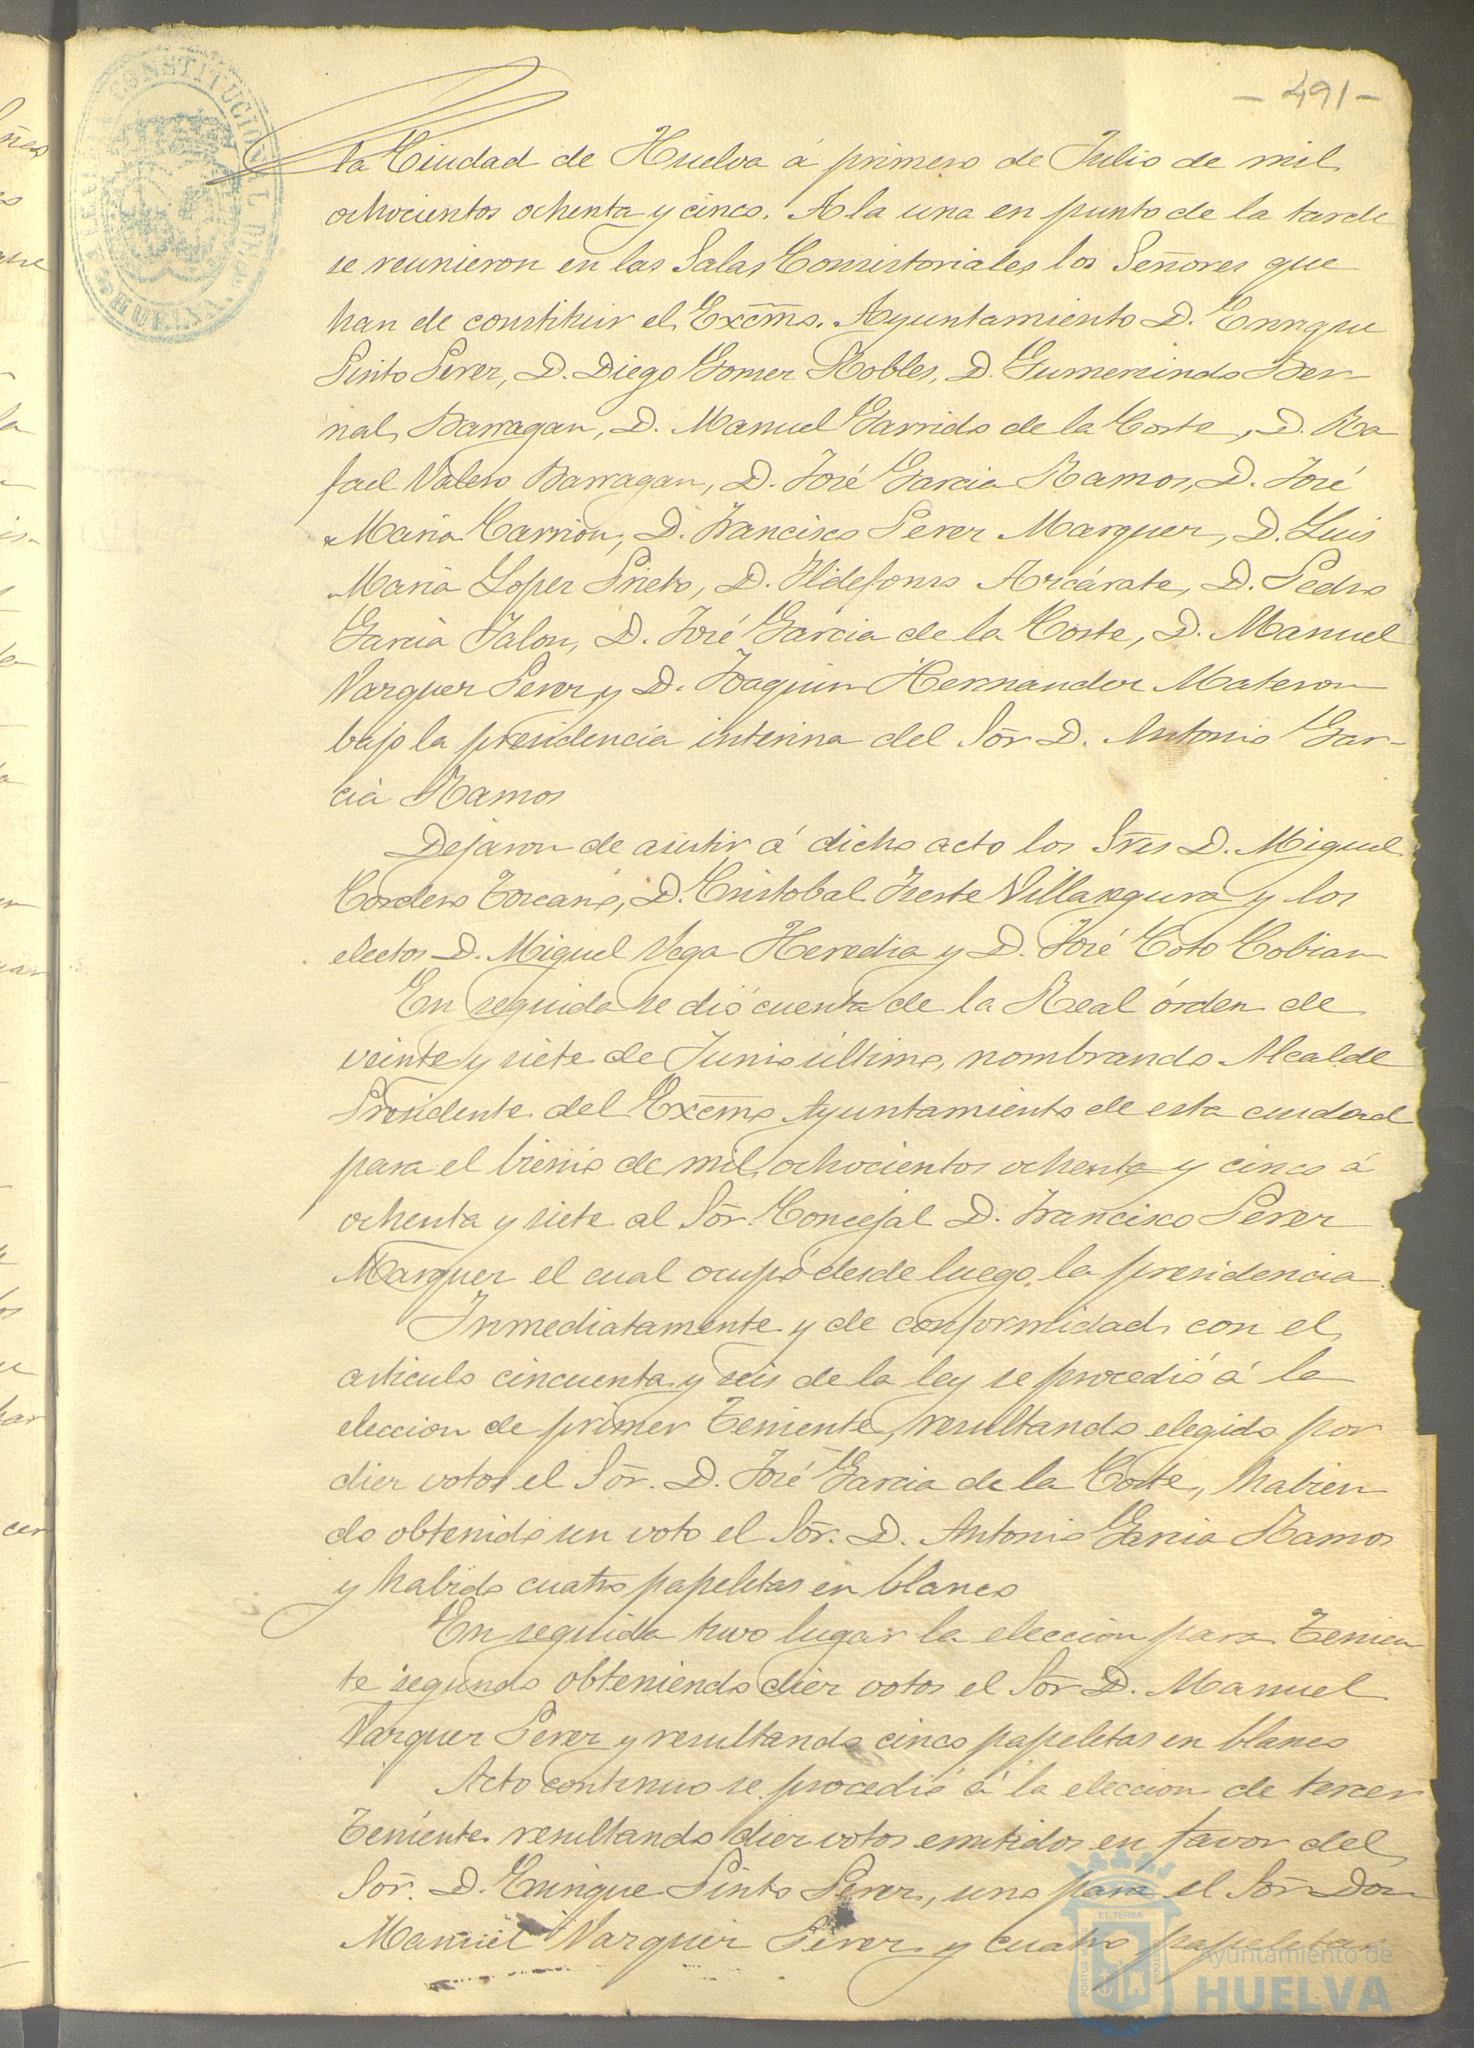 -491-
ALCALDIA CONSTITUCIONAL DE HUELVA
En la Ciudad de Huelva á primero de Julio de mil
ochocientos ochenta y cinco. A la una en punto de la tarde
se reunieron en las Salas Consistoriales los Señores que
han de constituir el Excmo. Ayuntamiento D. Enrique
Pinto Perez, D. Diego Gomez Robles, D. Gumersindo Ber-
nal Barragan, D. Manuel Garrido de la Corte, D. Ra
fael Valero Barragan, D. José Garcia Ramos, D. José
Maria Carrion, D. Francisco Perez Marquez, D. Luis
Maria Lopez Prieto, D. Ildefonso Arcárate, D. Pedro
Garcia Jalon, D. José Garcia de la Corte, D. Manuel
Vazquez Perez y D. Joaquin Hernandez Materon
bajo la presidencia interina del Sor. D. Antonio Gar-
cia Ramos
Dejaron de asistir á dicho acto los Sres D. Miguel
Cordero Toscano, D. Cristobal Fuerte Villasegura y los
electos D. Miguel Vega Heredia y D. José Coto Cobian
En seguida se dió cuenta de la Real órden de
veinte y siete de Junio último, nombrando Alcalde
Presidente del Excmo Ayuntamiento de esta ciudad
para el bienio de mil ochocientos ochenta y cinco á
ochenta y siete al Sor. Concejal D. Francisco Perez
Marquez el cual ocupó desde luego la presidencia.
Inmediatamente y de conformidad con el
articulo cincuenta y seis de la ley se procedió á la
eleccion de primer Teniente, resultando elegido por
diez votos el Sor. D. José Garcia de la Corte, habien
do obtenido un voto el Sor. D. Antonio Garcia Ramos
y habido cuatro papeletas en blanco
En seguida tuvo lugar la eleccion para Tenien
te segundo obteniendo diez votos el Sor D. Manuel
Vazquez Perez y resultando cinco papeletas en blanco
Acto continuo se procedió á la eleccion de tercer
Teniente resultando diez votos emitidos en favor del
Sor. D. Enrique Pinto Perez, uno para el Sor Don
Manuel Vazquez Perez y cuatro papeletas
Ayuntamiento de
HUELVA